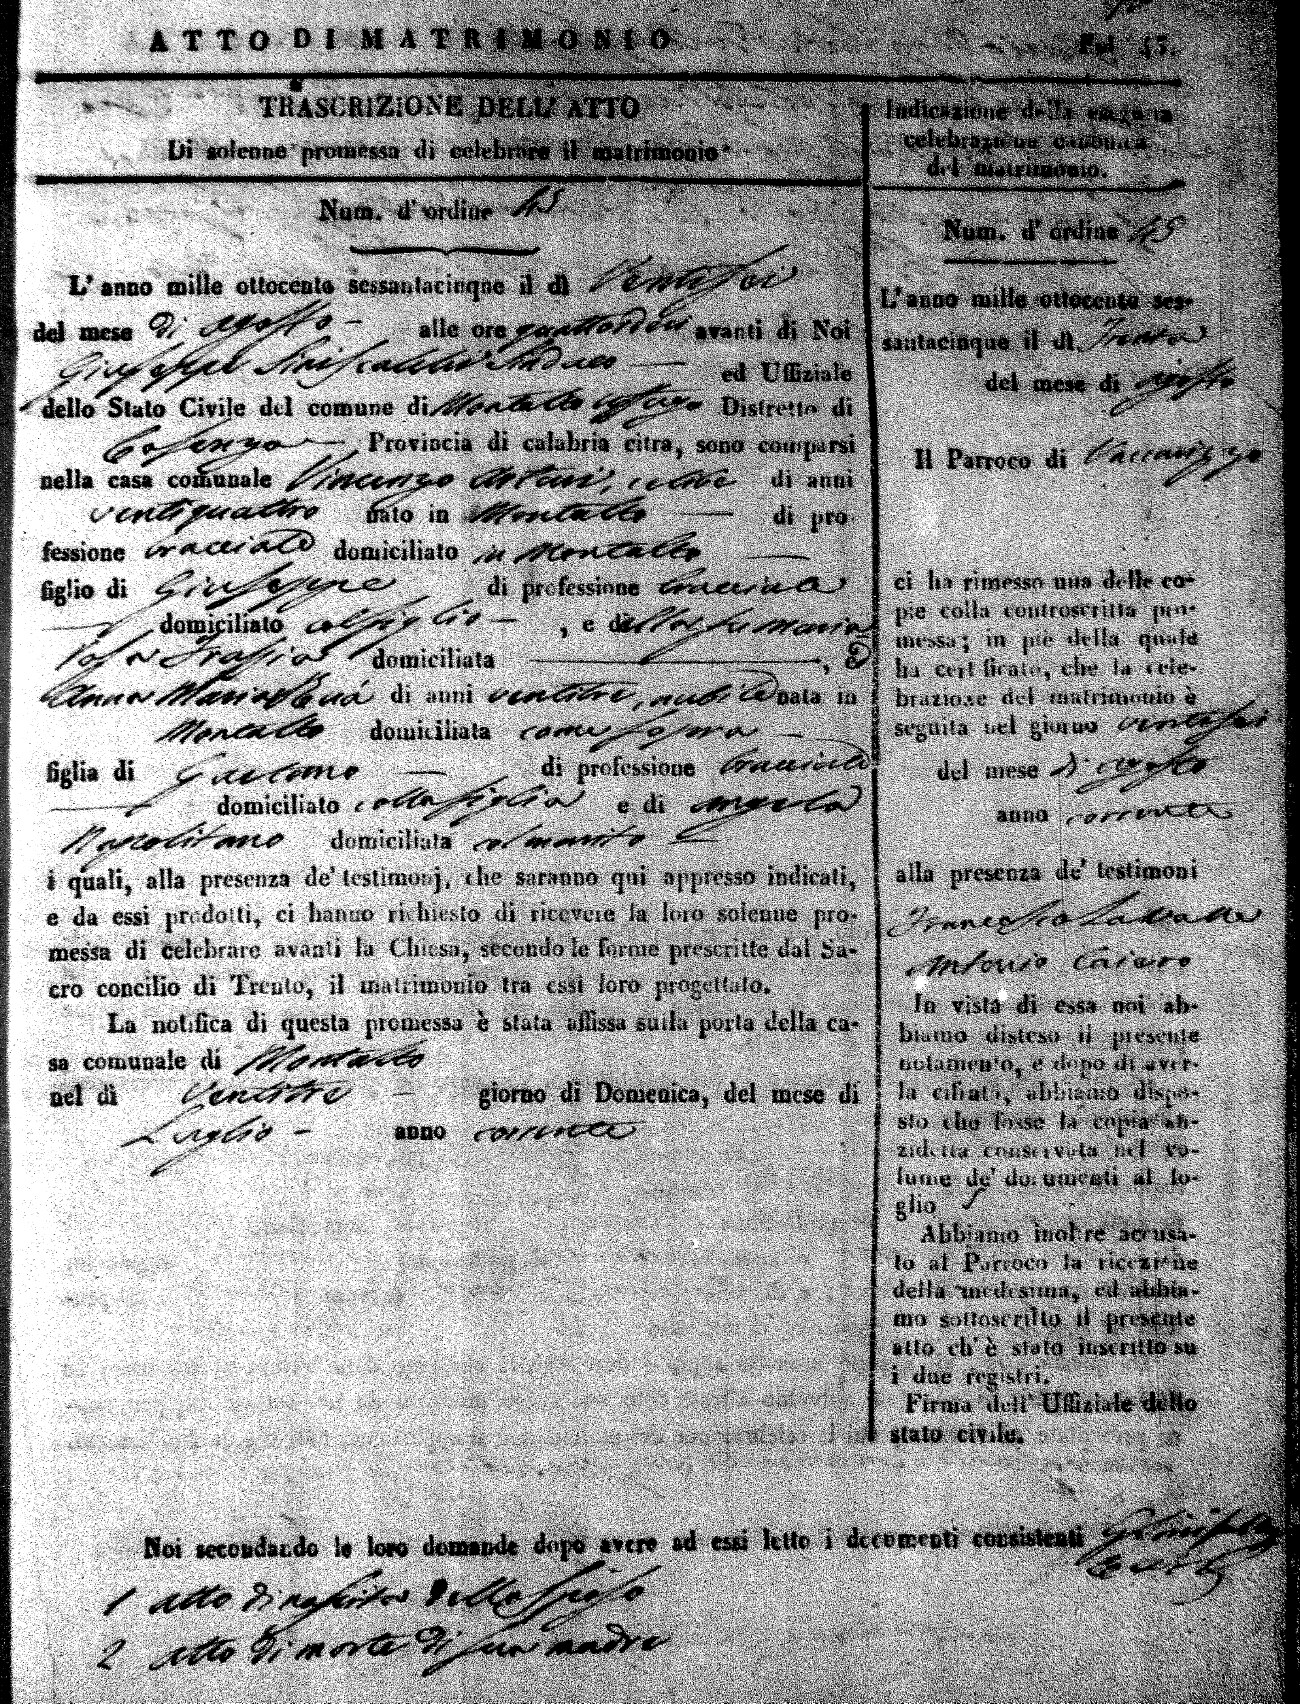 ATTO DI MATRIMONIO
Fol. 45.
TRASCRIZIONE DELL' ATTO
Di solenne promessa di celebrare il matrimonio
Num. d' ordine 45
L' anno mille ottocento sessantacinque il dì Ventisei
del mese di agosto alle ore quattordici avanti di Noi
Giuseppe Siniscalchi Sindaco ed Uffiziale
dello Stato Civile del comune di Montalto Uffugo Distretto di
Cosenza Provincia di calabria citra, sono comparsi
nella casa comunale Vincenzo celibe di anni
ventiquattro nato in Montalto di pro-
fessione bracciale domiciliato in Montalto
figlio di Giuseppe di professione bracciale
domiciliato col figlio, e della fu Maria
Rosa domiciliata , e
Anna Maria di anni ventitre, nubile nata in
Montalto domiciliata come sopra
figlia di Gaetano di professione bracciale
domiciliato colla figlia e di Angela
Napolitano domiciliata col marito
i quali, alla presenza de' testimonj, che saranno qui appresso indicati,
e da essi prodotti, ci hanno richiesto di ricevere la loro solenne pro-
messa di celebrare avanti la Chiesa, secondo le forme prescritte dal Sa-
cro concilio di Trento, il matrimonio tra essi loro progettato.
La notifica di questa promessa è stata affissa sulla porta della ca-
sa comunale di Montalto
nel dì Ventitre giorno di Domenica, del mese di
Luglio anno corrente
Indicazione della seguita
celebrazione canonica
del matrimonio.
Num. d' ordine 45
L' anno mille ottocento ses-
santacinque il dì Trenta
del mese di agosto
Il Parroco di Vaccarizzo
ci ha rimesso una delle co-
pie colla controscritta pro-
messa; in piè della quale
ha certificato, che la cele-
brazione del matrimonio è
seguita nel giorno ventisei
del mese di agosto
anno corrente
alla presenza de' testimoni
Francesco
Antonio
In vista di essa noi ab-
biamo disteso il presente
notamento, e dopo di aver-
la cifrata, abbiamo dispo-
sto che fosse la copia an-
zidetta conservata nel vo-
lume de' documenti al fo-
glio
Abbiamo inoltre accusa-
to al Parroco la ricezione
della medesima, ed abbia-
mo sottoscritto il presente
atto ch' è stato inscritto su
i due registri.
Firma dell' Uffiziale dello
stato civile.
Noi secondando le loro domande dopo avere ad essi letto i documenti consistenti
1 atto di nascita dello sposo
2 atto di morte di sua madre